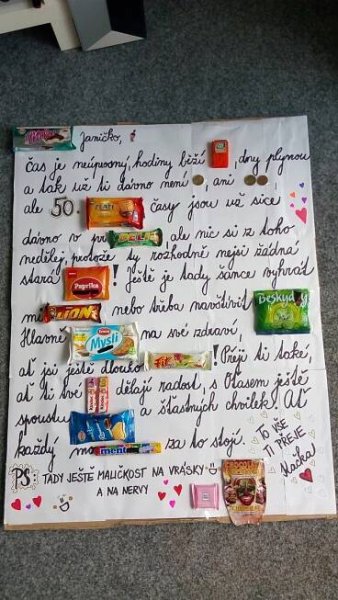 Janičko,
čas je neúprosný, hodiny běží, dny plynou
a tak už ti dávno není, ani
ale 50. ZLATÉ časy jsou už sice
dávno v pr DELI ale nic si z toho
nedělej, protože ty rozhodně nejsi žádná
stará Paprika! Ještě je tady šance vyhrát
LION nebo třeba navštívit Beskydy
Hlavně Mysli na své zdraví,
ať jsi ještě dlouho Fit! Přeji ti také,
ať ti tvé dělají radost, s Otasem ještě
spoustu a šťastných chvilek. Ať
každý moment za to stojí.
TO VŠE
TI PŘEJE
Macka!
PS TADY JEŠTĚ MALIČKOST NA VRÁSKY
A NA NERVY